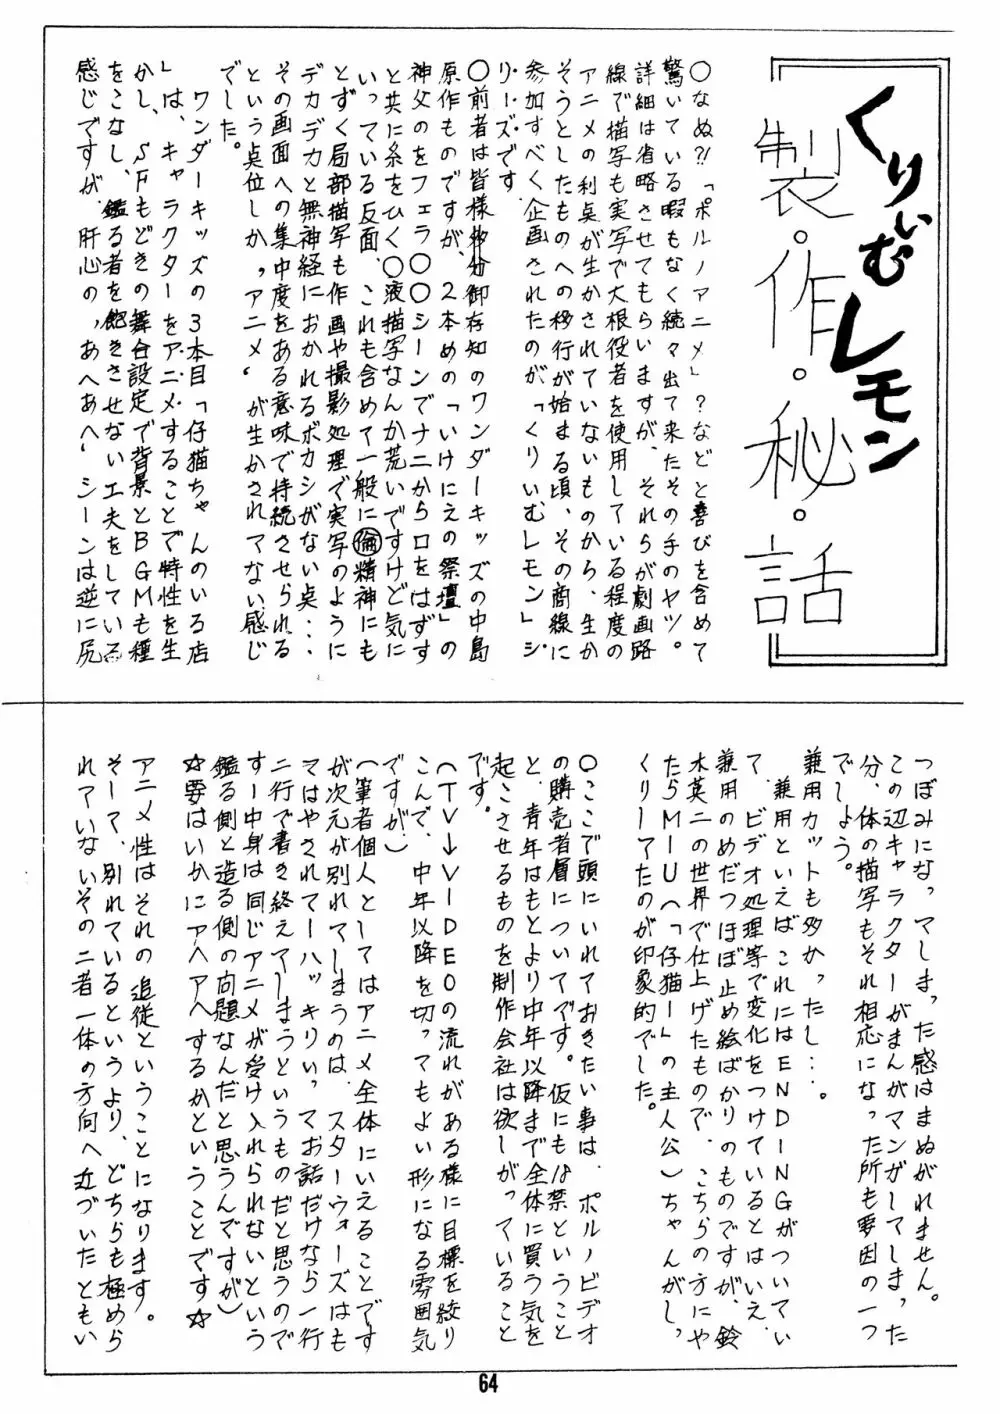 くりいむレモン
製・作・秘・話
○なぬ?!「ポルノアニメ」?などと喜びを含めて
驚いている暇もなく続々出て来たその手のヤツ。
詳細は省略させてもらいますが、それらが劇画路
線で描写も実写で大根役者を使用している程度の
アニメの利点が生かされていないものから、生か
そうとしたものへの移行が始まる頃、その商線に
参加すべく企画されたのが「くりいむレモン」シ
リーズです。
○前者は皆様多分御存知のワンダーキッズの中島
原作ものですが、2本めの「いけにえの祭壇」の
神父のをフェラ○○シーンでナニから口をはずす
と共に糸をひく○液描写なんか荒いですけど気に
いっている反面、これも含めて一般に倫精神にも
とずく局部描写も作画や撮影処理で実写のように
デカデカと無神経におかれるボカシがない点…
その画面への集中度をある意味で持続させられる
という点位しか〝アニメ〟が生かされてない感じ
でした。
ワンダーキッズの3本目「仔猫ちゃんのいる店
」は、キャラクターをア・ニ・メ・することで特性を生
かし、SFもどきの舞台設定で背景とBGMも種
をこなし、鑑る者を飽きさせない工夫をしている
感じですが、肝心の〝あへあへ〟シーンは逆に尻
つぼみになってしまった感はまぬがれません。
この辺キャラクターがまんがマンがしてしまった
分、体の描写もそれ相応になった所も要因の一つ
でしょう。
兼用カットも多かったし…。
兼用といえばこれにはENDINGがついてい
て、ビデオ処理等で変化をつけているとはいえ、
兼用のめだつほぼ止め絵ばかりのものですが、鈴
木英二の世界で仕上げたもので、こちらの方にや
たらMIU(「仔猫ー」の主人公)ちゃんがしっ
くりしてたのが印象的でした。
○ここで頭にいれておきたい事は、ポルノビデオ
の購売者層についてです。仮にも18禁ということ
と、青年はもとより中年以降まで全体に買う気を
起こさせるものを制作会社は欲しがっていること
です。
(TV→VIDEOの流れがある様に目標を絞り
こんで、中年以降を切ってもよい形になる雰囲気
ですが)
(筆者個人としてはアニメ全体にいえることです
が次元が別れてしまうのは、スターウォーズはも
てはやされてーハッキリいってお話だけなら一行
二行で書き終えてしまうというものだと思うので
すー中身は同じアニメが受け入れられないという
鑑る側と造る側の問題なんだと思うんですが)
☆要はいかにアヘアヘするかということです☆
アニメ性はそれの追従ということになります。
そーて、別れているというより、どちらも極めら
れていないその二者一体の方向へ近づいたともい
64